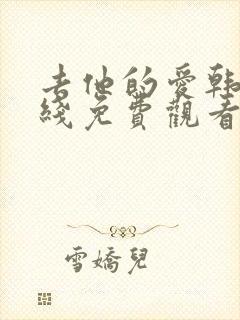 去他的愛韓
綫免費觀看
雪嬌兒